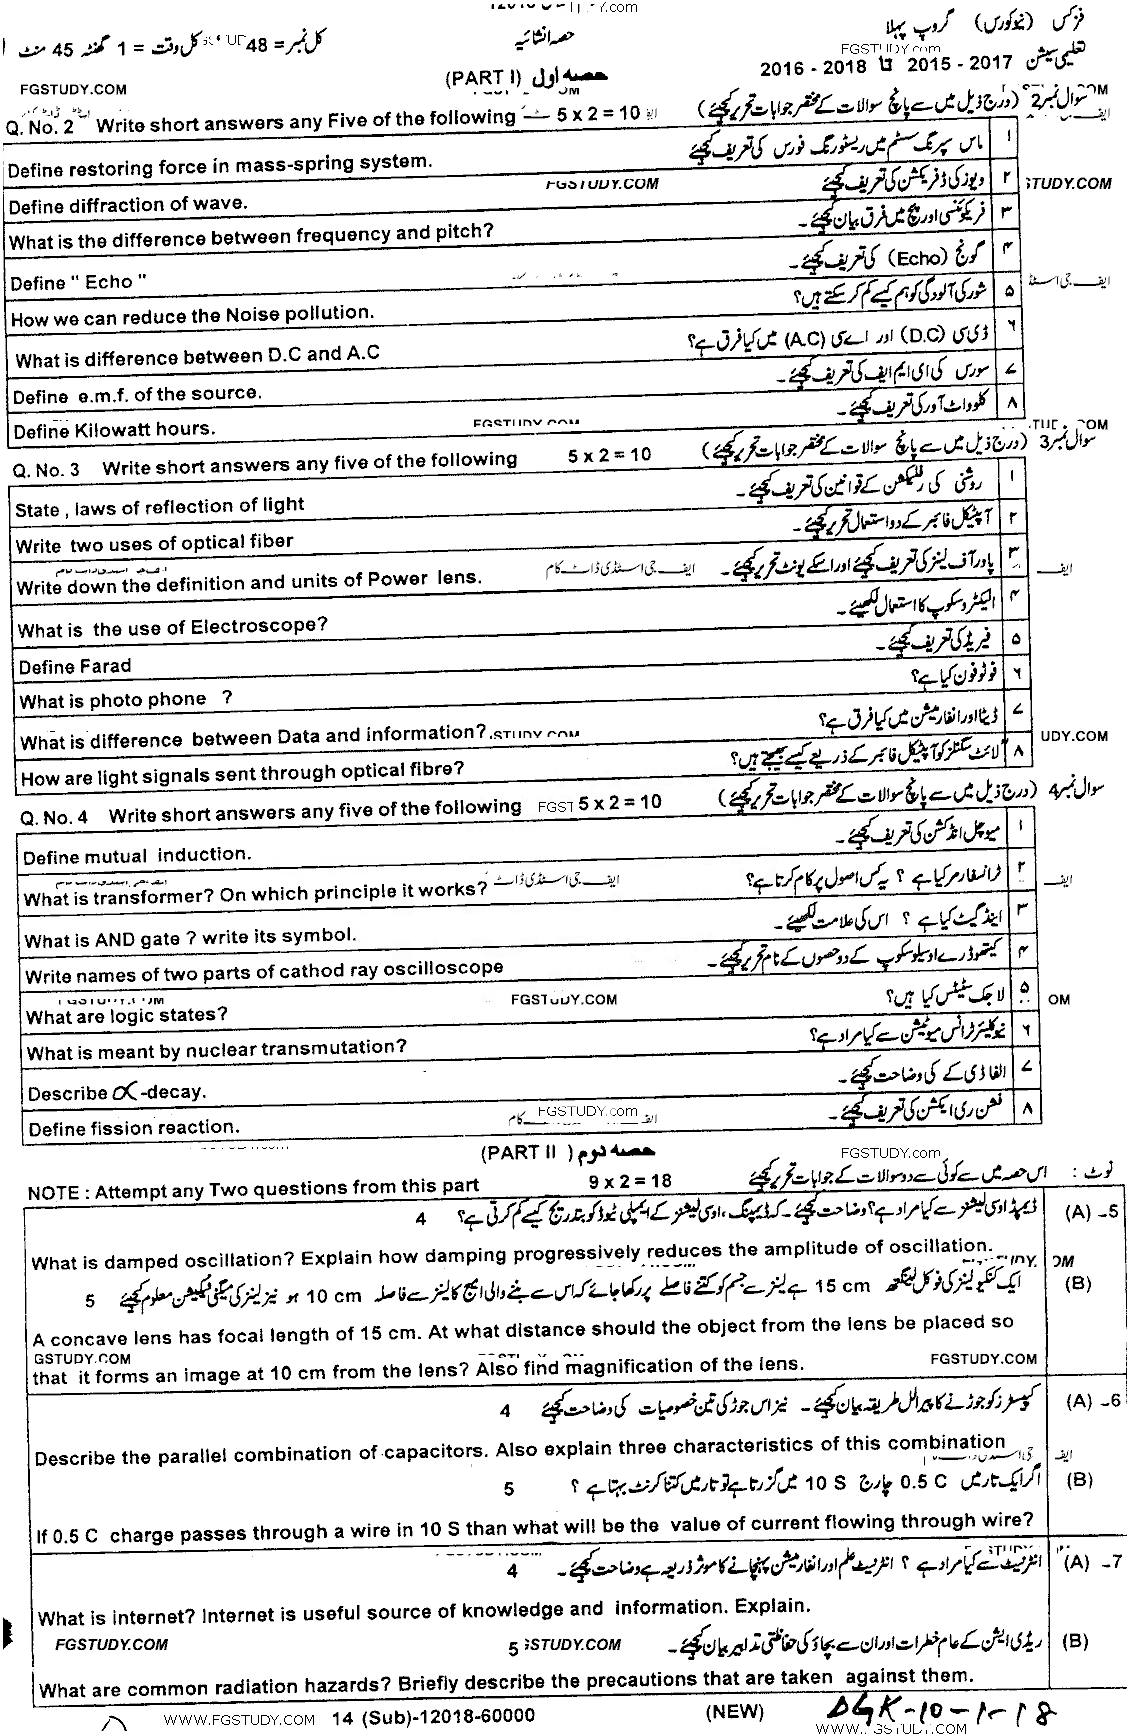 فزکس (نیوکورس) گروپ پہلا
حصہ انشائیہ
کل نمبر = 48 کل وقت = 1 گھنٹہ 45 منٹ
FGSTUDY.com
تعلیمی سیشن 2015 - 2017 تا 2016 - 2018
(PART I) حصہ اول
FGSTUDY.COM
سوال نمبر 2 (درج ذیل میں سے پانچ سوالات کے مختصر جوابات تحریر کیجئے)
Q. No. 2 Write short answers any Five of the following 5 x 2 = 10
۱ ماس سپرنگ سسٹم میں ریسٹورنگ فورس کی تعریف کیجئے۔
Define restoring force in mass-spring system.
۲ ویوز کی ڈفریکشن کی تعریف کیجئے
FGSTUDY.COM
Define diffraction of wave.
۳ فریکوئنسی اور پچ میں فرق بیان کیجئے۔
What is the difference between frequency and pitch?
۴ گونج (Echo) کی تعریف کیجئے۔
Define " Echo "
۵ شور کی آلودگی کو ہم کیسے کم کر سکتے ہیں؟
How we can reduce the Noise pollution.
۶ ڈی سی (D.C) اور اے سی (A.C) میں کیا فرق ہے؟
What is difference between D.C and A.C
۷ سورس کی ای ایم ایف کی تعریف کیجئے۔
Define e.m.f. of the source.
۸ کلو واٹ آور کی تعریف کیجئے۔
Define Kilowatt hours.
سوال نمبر 3 (درج ذیل میں سے پانچ سوالات کے مختصر جوابات تحریر کیجئے)
Q. No. 3 Write short answers any five of the following 5 x 2 = 10
۱ روشنی کی رفلیکشن کے قوانین کی تعریف کیجئے۔
State , laws of reflection of light
۲ آپٹیکل فائبر کے دو استعمال تحریر کیجئے۔
Write two uses of optical fiber
۳ پاور آف لینز کی تعریف کیجئے اور اسکے یونٹ تحریر کیجئے۔
ایف جی اسٹڈی ڈاٹ کام
Write down the definition and units of Power lens.
۴ الیکٹروسکوپ کا استعمال لکھیئے۔
What is the use of Electroscope?
۵ فیریڈ کی تعریف کیجئے۔
Define Farad
۶ فوٹو فون کیا ہے؟
What is photo phone ?
۷ ڈیٹا اور انفارمیشن میں کیا فرق ہے؟
What is difference between Data and information?
۸ لائٹ سگنلز کو آپٹیکل فائبر کے ذریعے کیسے بھیجتے ہیں؟
How are light signals sent through optical fibre?
سوال نمبر 4 (درج ذیل میں سے پانچ سوالات کے مختصر جوابات تحریر کیجئے)
Q. No. 4 Write short answers any five of the following 5 x 2 = 10
۱ میوچل انڈکشن کی تعریف کیجئے۔
Define mutual induction.
۲ ٹرانسفارمر کیا ہے ؟ یہ کس اصول پر کام کرتا ہے؟
What is transformer? On which principle it works?
۳ اینڈ گیٹ کیا ہے ؟ اس کی علامت لکھیئے۔
What is AND gate ? write its symbol.
۴ کیتھوڈ رے اوسیلوسکوپ کے دو حصوں کے نام تحریر کیجئے۔
Write names of two parts of cathod ray oscilloscope
۵ لاجک سٹیٹس کیا ہیں؟
FGSTUDY.COM
What are logic states?
۶ نیوکلیئر ٹرانس میوٹیشن سے کیا مراد ہے؟
What is meant by nuclear transmutation?
۷ الفا ڈی کے کی وضاحت کیجئے۔
Describe α -decay.
۸ فشن ری ایکشن کی تعریف کیجئے۔
FGSTUDY.com
Define fission reaction.
(PART II ) حصہ دوم
FGSTUDY.com
نوٹ : اس حصہ میں سے کوئی سے دو سوالات کے جوابات تحریر کیجئے
NOTE : Attempt any Two questions from this part 9 x 2 = 18
5- (A) ڈیمپڈ اوسی لیشنز سے کیا مراد ہے؟ وضاحت کیجئے۔ کہ ڈیمپنگ، اوسی لیشنز کے ایمپلی ٹیوڈ کو بتدریج کیسے کم کرتی ہے؟ 4
What is damped oscillation? Explain how damping progressively reduces the amplitude of oscillation.
(B) ایک کنکیو لینز کی فوکل لینگتھ 15 cm ہے لینز سے جسم کو کتنے فاصلے پر رکھا جائے کہ اس سے بننے والی امیج کا لینز سے فاصلہ 10 cm ہو نیز لینز کی میگنی فیکیشن معلوم کیجئے 5
A concave lens has focal length of 15 cm. At what distance should the object from the lens be placed so
GSTUDY.COM FGSTUDY.COM
that it forms an image at 10 cm from the lens? Also find magnification of the lens.
6- (A) کپیسٹرز کو جوڑنے کا پیرالل طریقہ بیان کیجئے۔ نیز اس جوڑ کی تین خصوصیات کی وضاحت کیجئے 4
Describe the parallel combination of capacitors. Also explain three characteristics of this combination
(B) اگر ایک تار میں 0.5 C چارج 10 S میں گزرتا ہے تو تار میں کتنا کرنٹ بہتا ہے ؟ 5
If 0.5 C charge passes through a wire in 10 S than what will be the value of current flowing through wire?
7- (A) انٹرنیٹ سے کیا مراد ہے ؟ انٹرنیٹ علم اور انفارمیشن پہنچانے کا موثر ذریعہ ہے وضاحت کیجئے۔ 4
What is internet? Internet is useful source of knowledge and information. Explain.
(B) ریڈی ایشن کے عام خطرات اور ان سے بچاؤ کی حفاظتی تدابیر بیان کیجئے۔ 5
FGSTUDY.COM
What are common radiation hazards? Briefly describe the precautions that are taken against them.
WWW.FGSTUDY.COM 14 (Sub)-12018-60000 (NEW) DGK-10-1-18
WWW.FGSTUDY.COM